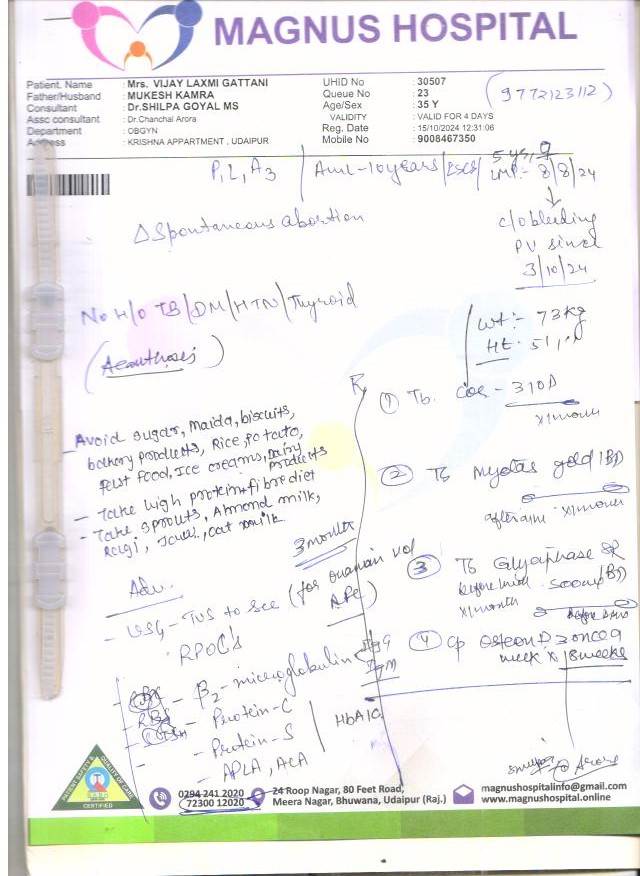 MAGNUS HOSPITAL
Patient. Name : Mrs. VIJAY LAXMI GATTANI
Father/Husband : MUKESH KAMRA
Consultant : Dr.SHILPA GOYAL MS
Assc consultant : Dr.Chanchal Arora
Department : OBGYN
Address : KRISHNA APPARTMENT, UDAIPUR
UHID No : 30507
Queue No : 23
Age/Sex : 35 Y
VALIDITY : VALID FOR 4 DAYS
Reg. Date : 15/10/2024 12:31:06
Mobile No : 9008467350
(9772123112)
P1 L1 A3 | Aml-10years | LSCS | 5 ys, ♀
LMP:- 8/8/24
↓
c/o bleeding
PV since
3/10/24
Δ Spontaneous abortion
No H/O TB/DM/HTN/Thyroid
wt:- 73kg
Ht.
Avoid sugar, Maida, biscuits,
bakery products, Rice, potato,
fast food, Ice creams, Dairy products
- Take high protein + fibre diet
- Take sprouts, Almond milk,
Ragi, oat milk
3 months
Rx
① Tb. x1month
② Tb Myotas gold 1BD
x1month
③ Tb Glyciphase SR
500mg (BD)
x1month
④ Cp Osteon D3 once a
week x 8 weeks
Adv.
- USG - TVS to see (for ovarian vol
AFC)
RPOC's
CBC - β2-microglobulin IgG
IgM
RBS - Protein-C
- Protein-S
HbA1C
- APLA, ACA
PATIENT SAFETY & QUALITY OF CARE
CERTIFIED
0294 241 2020
72300 12020
24 Roop Nagar, 80 Feet Road,
Meera Nagar, Bhuwana, Udaipur (Raj.)
magnushospitalinfo@gmail.com
www.magnushospital.online